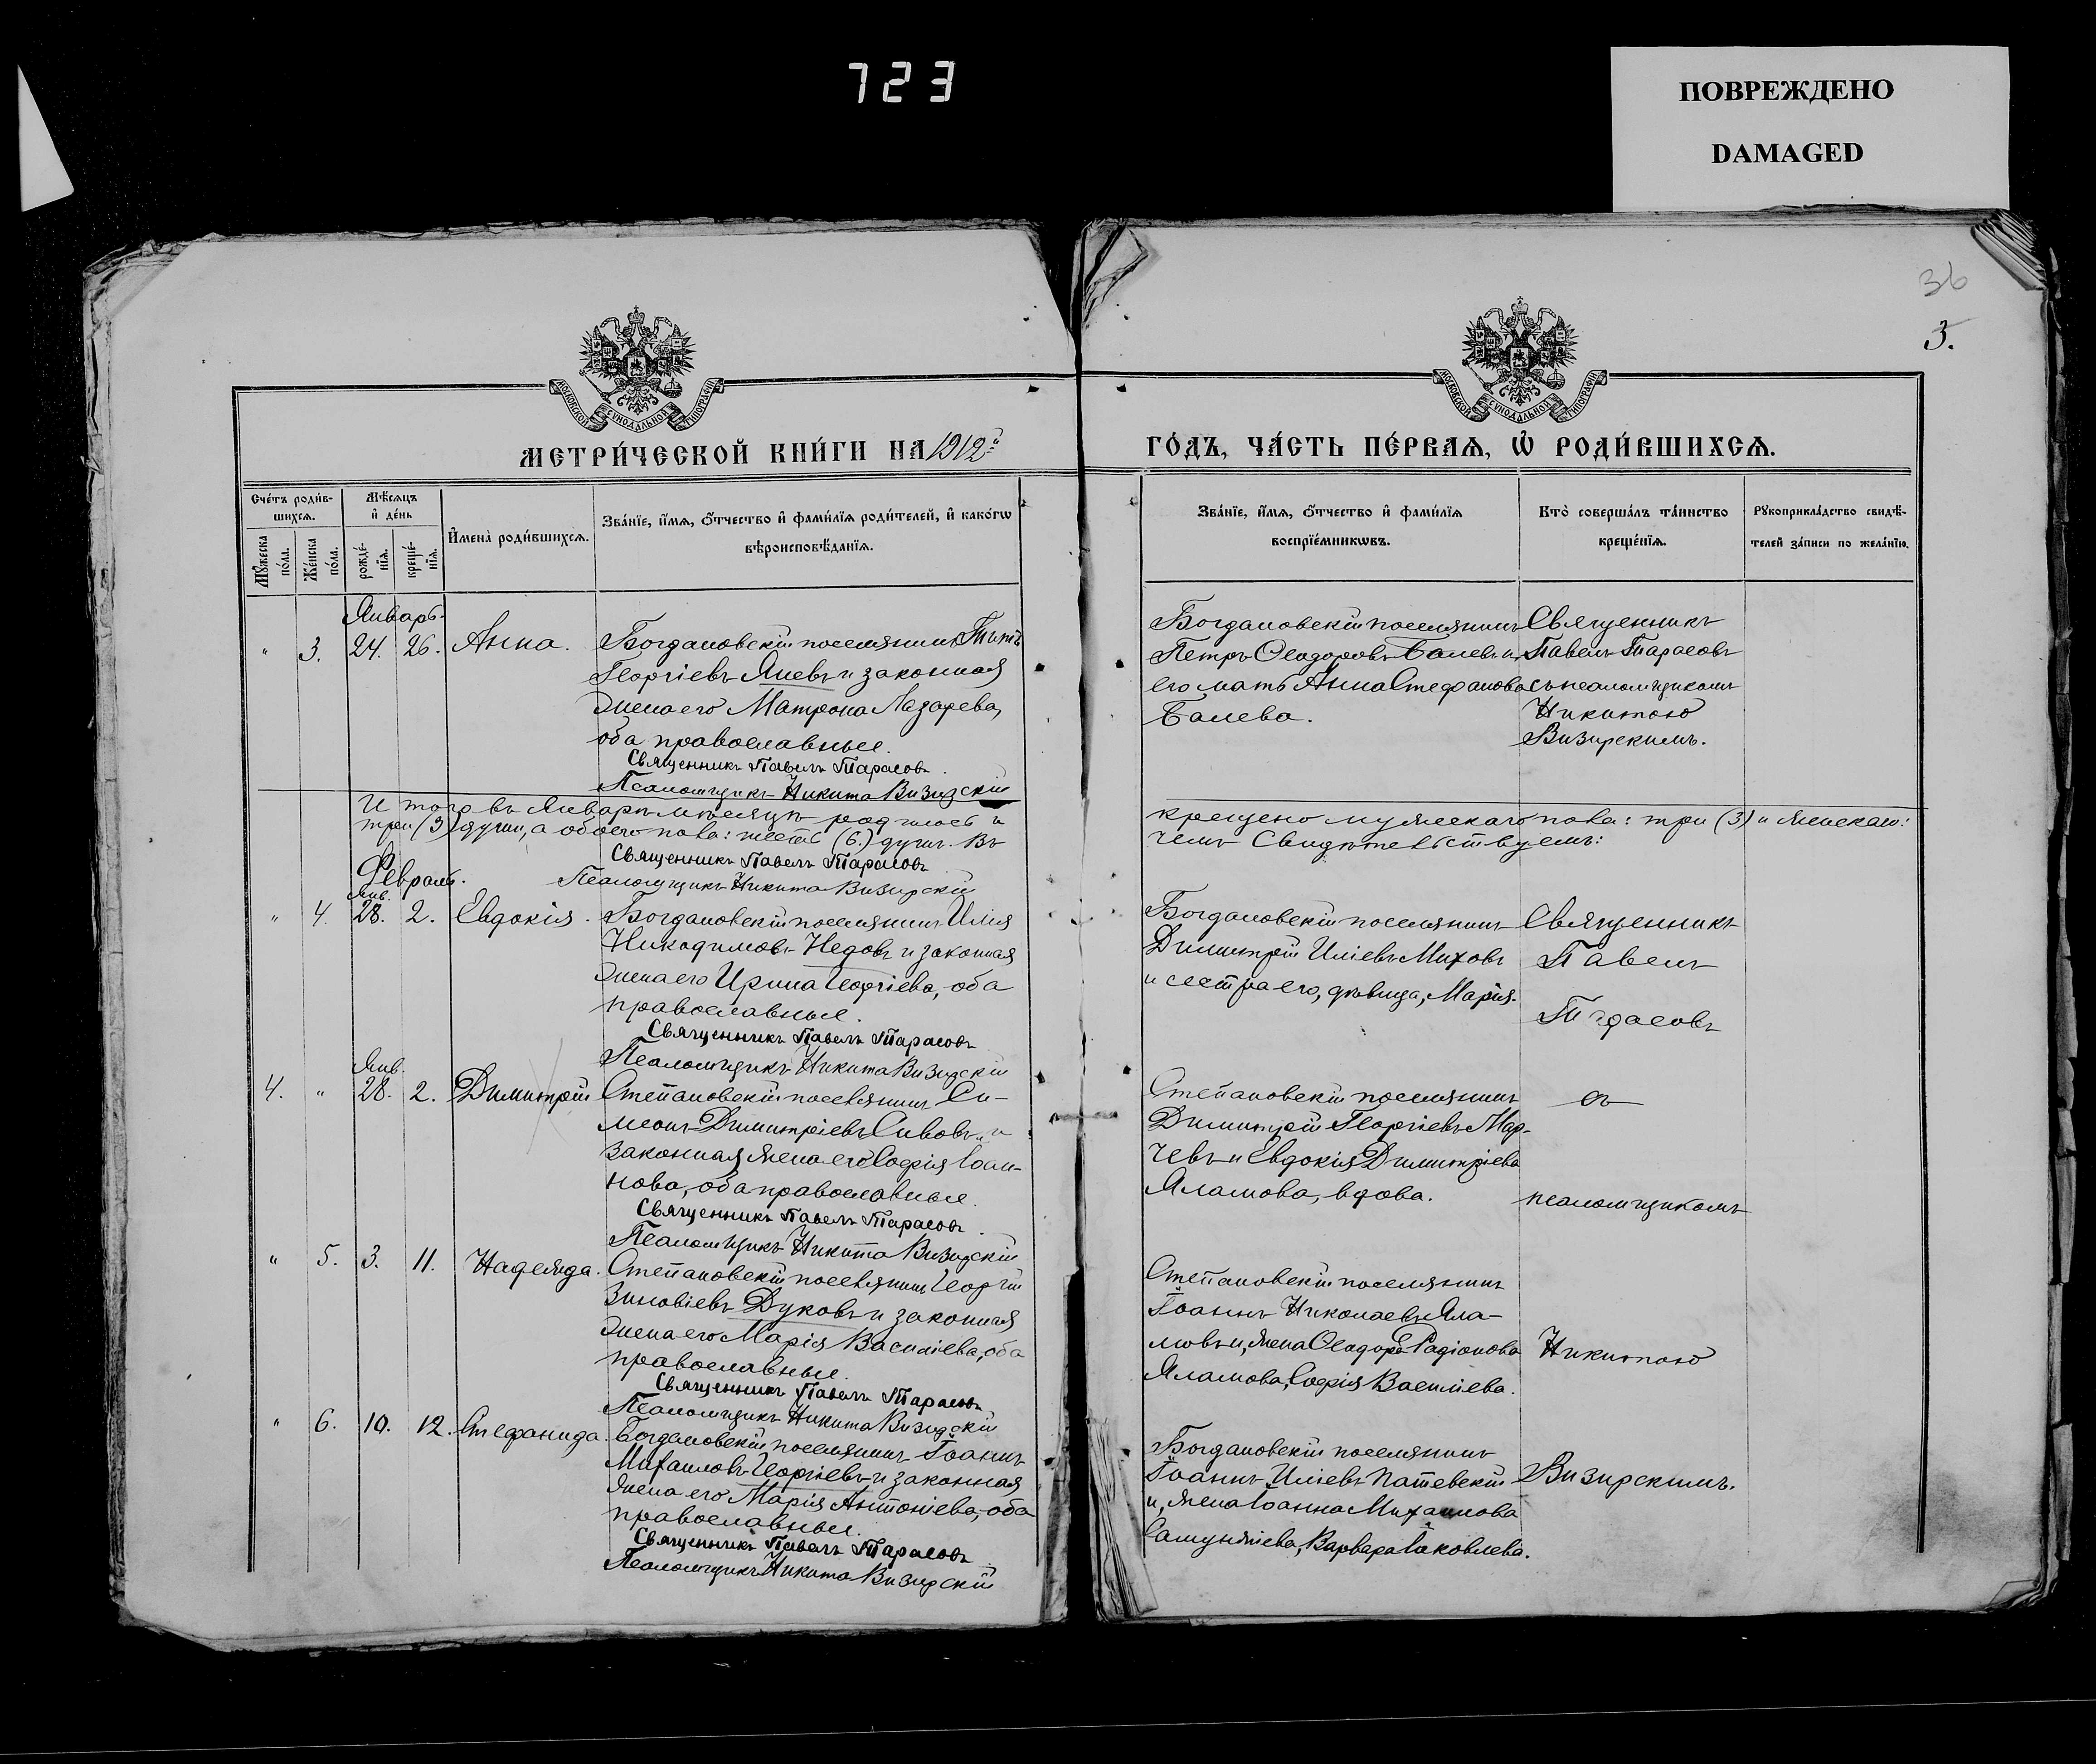 723
ПОВРЕЖДЕНО
DAMAGED
36
3.
МОСКОВСКОЙ СУНОДАЛЬНОЙ ТИПОГРАФІИ
МОСКОВСКОЙ СУНОДАЛЬНОЙ ТИПОГРАФІИ
МЕТРИ́ЧЕСКОЙ КНИ́ГИ НА 1912й
ГО́ДЪ, ЧА́СТЬ ПЕ́РВАѦ, Ѡ҆ РОДИ́ВШИХСѦ.
Сче́тъ роди́в-
шихсѧ.
Мꙋ́жеска по́ла.
Же́нска по́ла.
Мѣ́сѧцъ
и҆ де́нь
рожде́-
нїѧ.
креще́-
нїѧ.
И҆мена̀ роди́вшихсѧ.
Зва́нїе, и҆́мѧ, ѻ҆́тчество и҆ фами́лїѧ роди́телей, и҆ како́гѡ
вѣроисповѣ́данїѧ.
Зва́нїе, и҆́мѧ, ѻ҆́тчество и҆ фами́лїѧ
воспрїе́мникѡвъ.
Кто̀ соверша́лъ та́инство
креще́нїѧ.
Рꙋкоприкла́дство свидѣ́-
телей за́писи по жела́нїю.
Январь.
" 3. 24. 26. Анна.
Богдановскій поселянинъ Титъ
Георгіевъ Яневъ и законная
жена его Матрона Лазарева,
оба православные.
Священникъ Павелъ Тарасовъ.
Псаломщикъ Никита Визирскій
Богдановскій поселянинъ
Петръ Ѳеодоровъ Балевъ и
его мать Анна Стефанова
Балева.
Священникъ
Павелъ Тарасовъ
съ псаломщикомъ
Никитою
Визирскимъ.
Итого въ Январѣ мѣсяцѣ родилось и
крещено мужескаго пола: три (3) и женскаго:
три (3) души, а обоего пола: шесть (6.) душъ. Въ
чемъ Свидѣтельствуемъ:
Священникъ Павелъ Тарасовъ
Псаломщикъ Никита Визирскій
Февраль.
Янв.
" 4. 28. 2. Евдокія.
Богдановскій поселянинъ Илія
Никодимовъ Недовъ и законная
жена его Ирина Георгіева, оба
православные.
Священникъ Павелъ Тарасовъ
Псаломщикъ Никита Визирскій
Богдановскій поселянинъ
Димитрій Иліевъ Миховъ
и сестра его, дѣвица, Марія.
Священникъ
Павелъ
Тарасовъ
Янв.
4. " 28. 2. Димитрій
Степановскій поселянинъ Си-
меонъ Димитріевъ Сивовъ и
законная жена его Софія Іоан-
нова, оба православные.
Священникъ Павелъ Тарасовъ.
Псаломщикъ Никита Визирскій
Степановскій поселянинъ
Димитрій Георгіевъ Мар-
чевъ и Евдокія Димитріева
Яламова, вдова.
съ
псаломщикомъ
" 5. 3. 11. Надежда.
Степановскій поселянинъ Георгій
Зиновіевъ Дуковъ и законная
жена его Марія Василіева, оба
православные.
Священникъ Павелъ Тарасовъ
Псаломщикъ Никита Визирскій
Степановскій поселянинъ
Іоаннъ Николаевъ Яла-
мовъ и, жена Ѳеодора Радіонова
Яламова, Софія Василіева.
Никитою
" 6. 10. 12. Стефанида.
Богдановскій поселянинъ Іоаннъ
Михаиловъ Георгіевъ и законная
жена его Марія Антоніева, оба
православные.
Священникъ Павелъ Тарасовъ
Псаломщикъ Никита Визирскій
Богдановскій поселянинъ
Іоаннъ Иліевъ Патевскій
и, жена Іоанна Михаилова
Варвара Іаковлева.
Визирскимъ.